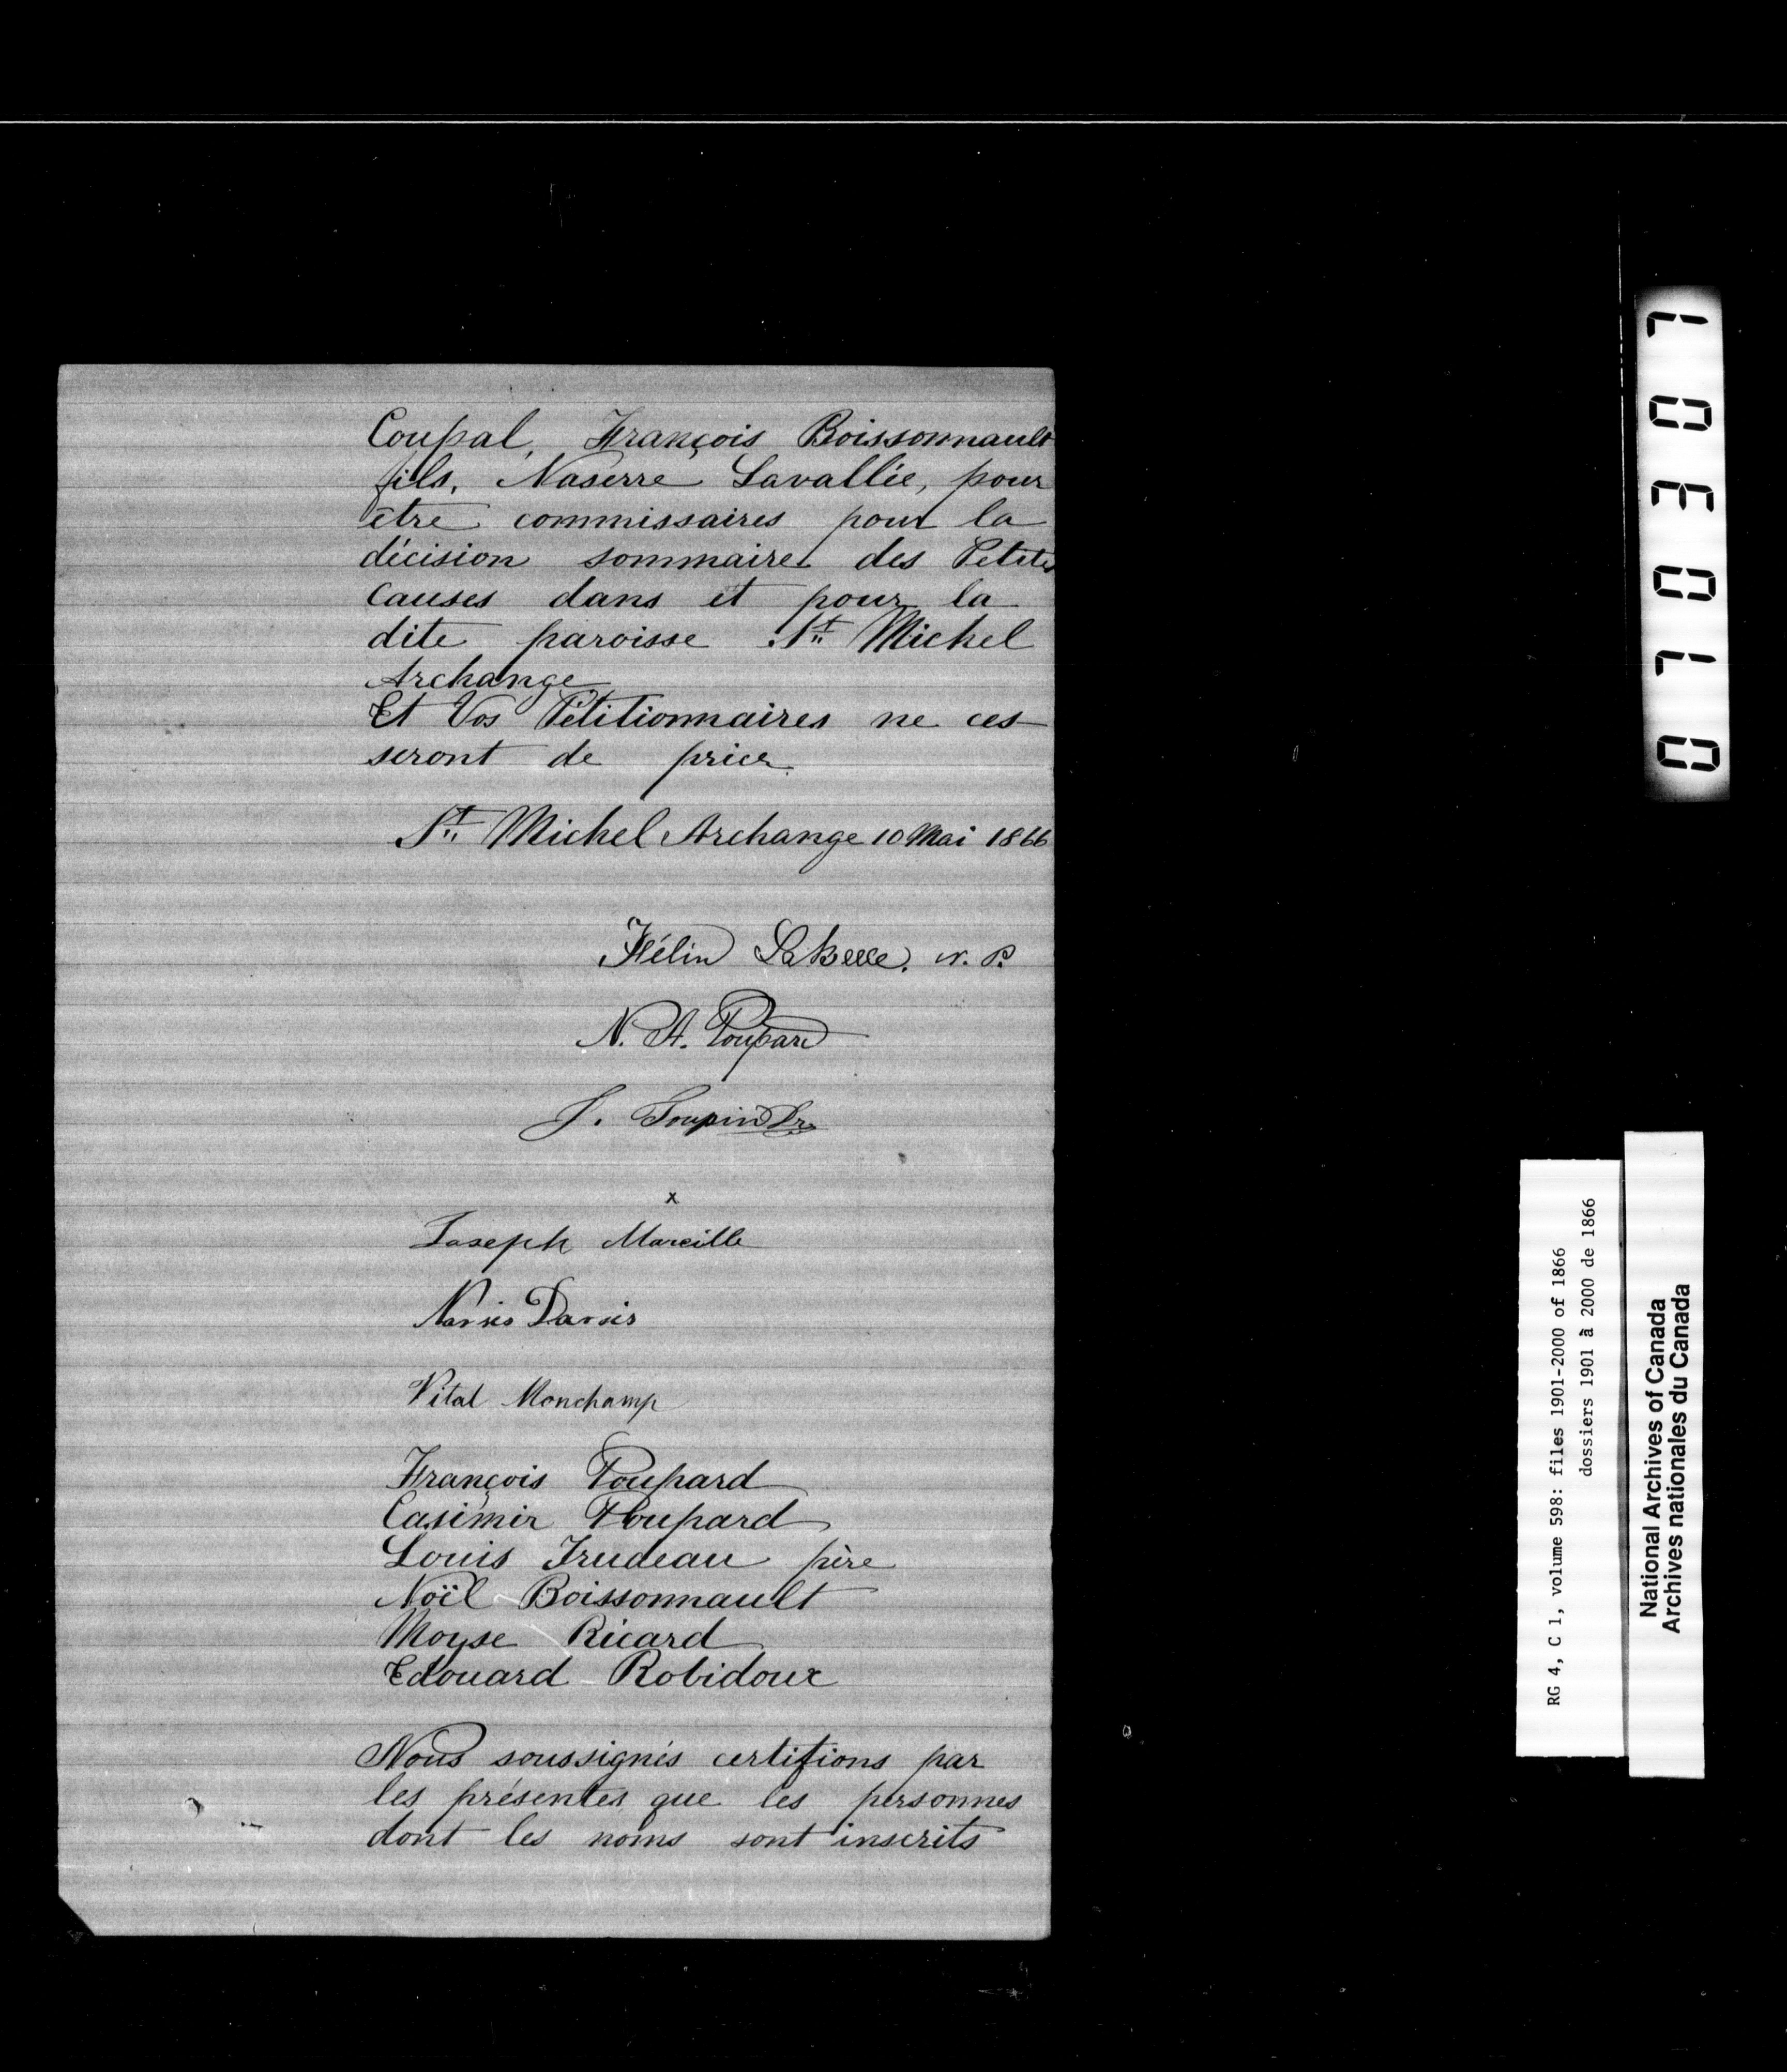 Coupal, François Boissonnault
fils, Naserre Lavallée, pour
être commissaires pour la
décision sommaire des Petites
causes dans et pour la
dite paroisse St. Michel
Archange
Et Vos Pétitionnaires ne ces
seront de prier.
St. Michel Archange 10 Mai 1866
Félin LaBelle, N. P.
N. A. Poupard
J. Toupin Dr.
x
Joseph Marcille
Narsis Darsis
Vital Monchamp
François Poupard
Casimir Poupard
Louis Trudeau père
Noël Boissonnault
Moyse Ricard
Edouard Robidoux
Nous soussignés certifions par
les présentes que les personnes
dont les noms sont inscrits
010307
RG 4, C 1, volume 598: files 1901-2000 of 1866
dossiers 1901 à 2000 de 1866
National Archives of Canada
Archives nationales du Canada